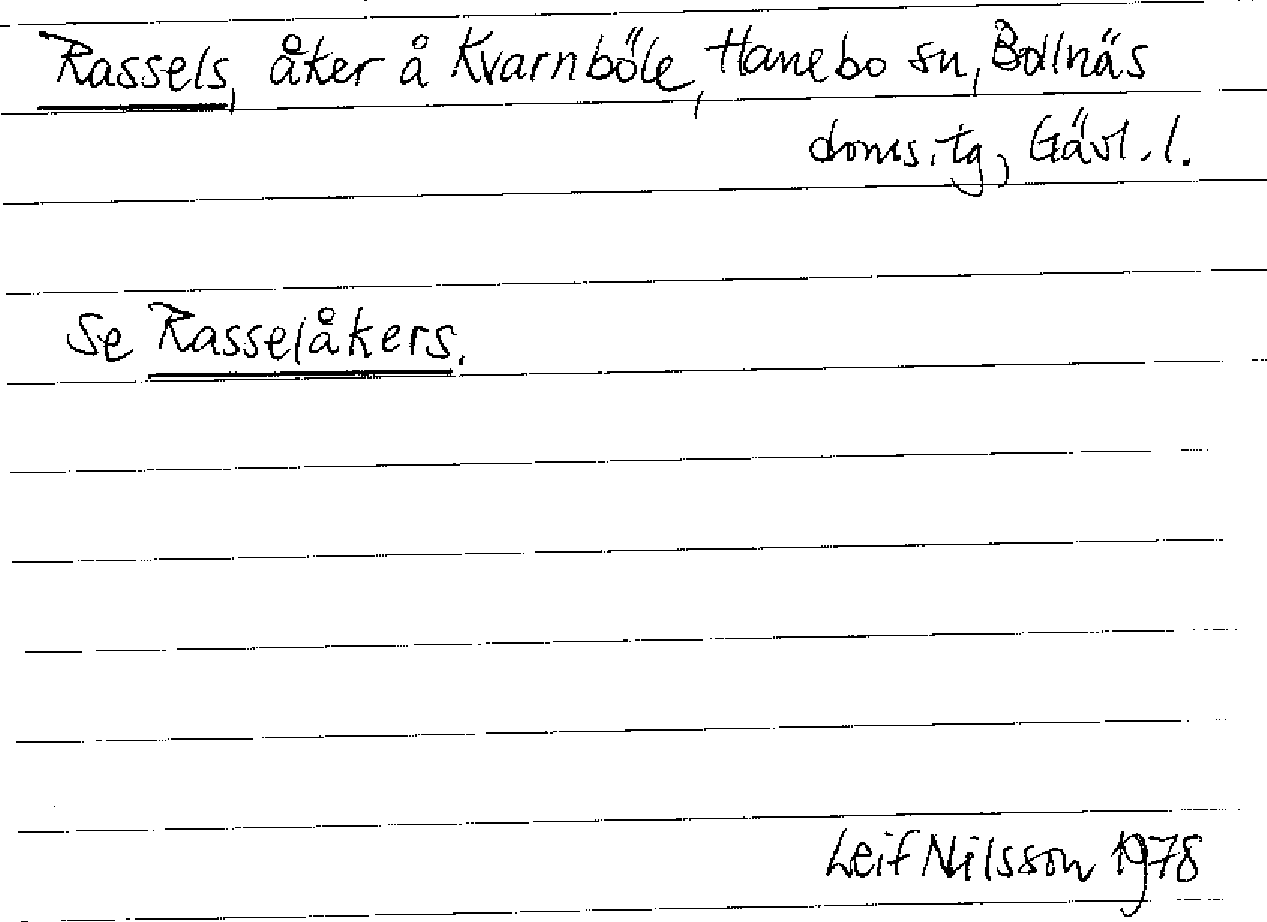 Rassels, åker å Kvarnböle, Hanebo sn, Bollnäs
doms.tg, Gävl.l.
Se Rasselåkers.
Leif Nilsson 1978